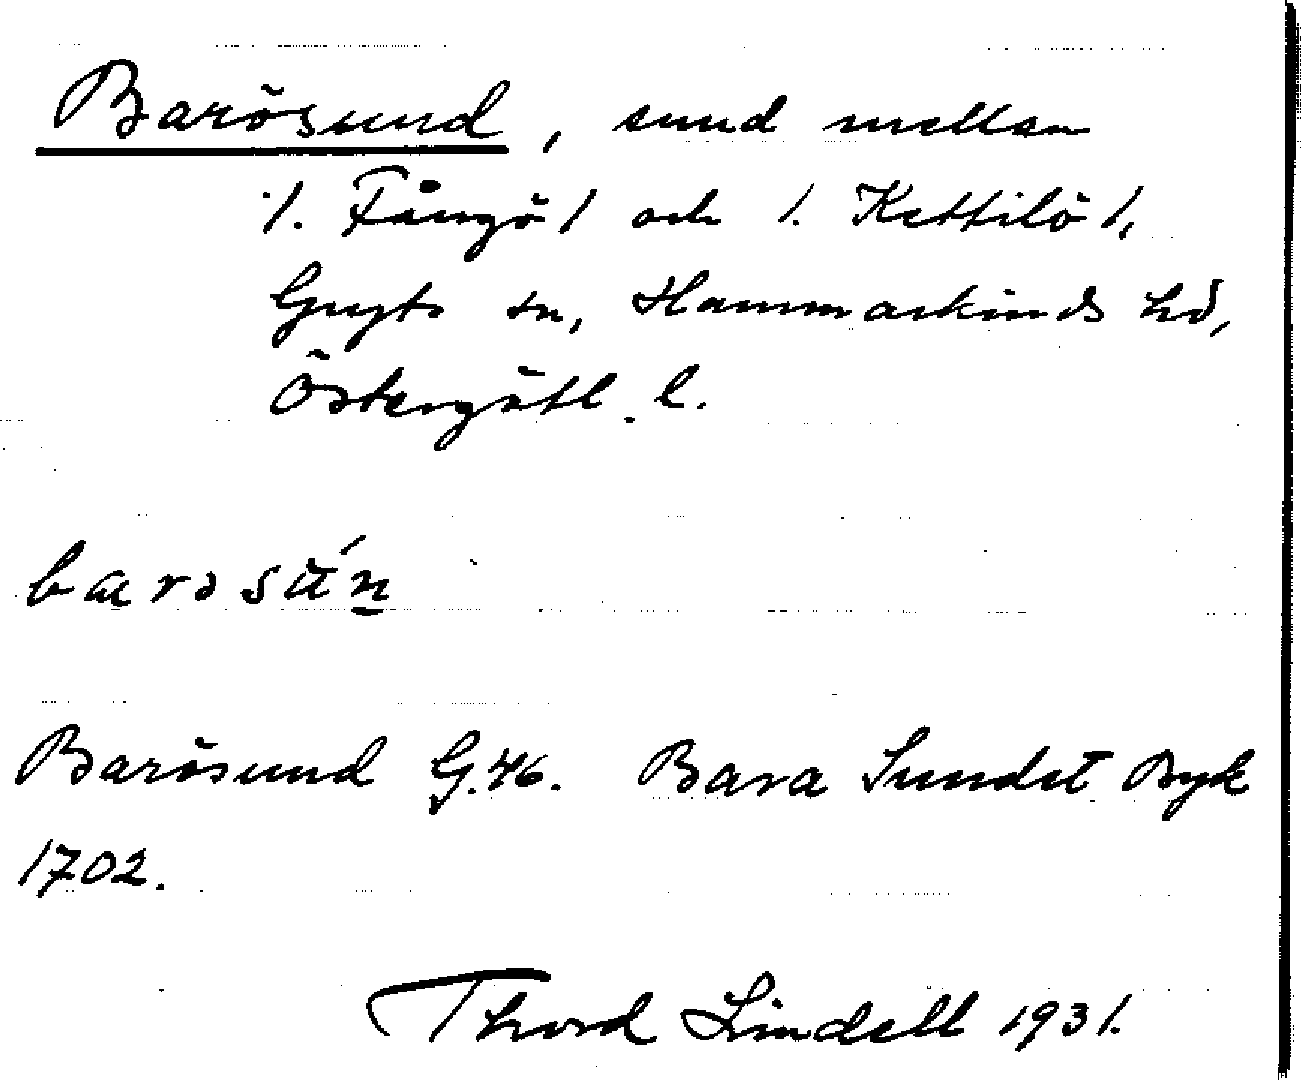 Barösund, sund mellan
1. Fångö 1 och 1. Kettilö 1,
Gryts sn, Hammarkinds hd,
Östergötl. l.
barosún
Barösund G.46. Bara Sundet Byk
1702.
Thord Lindell 1931.